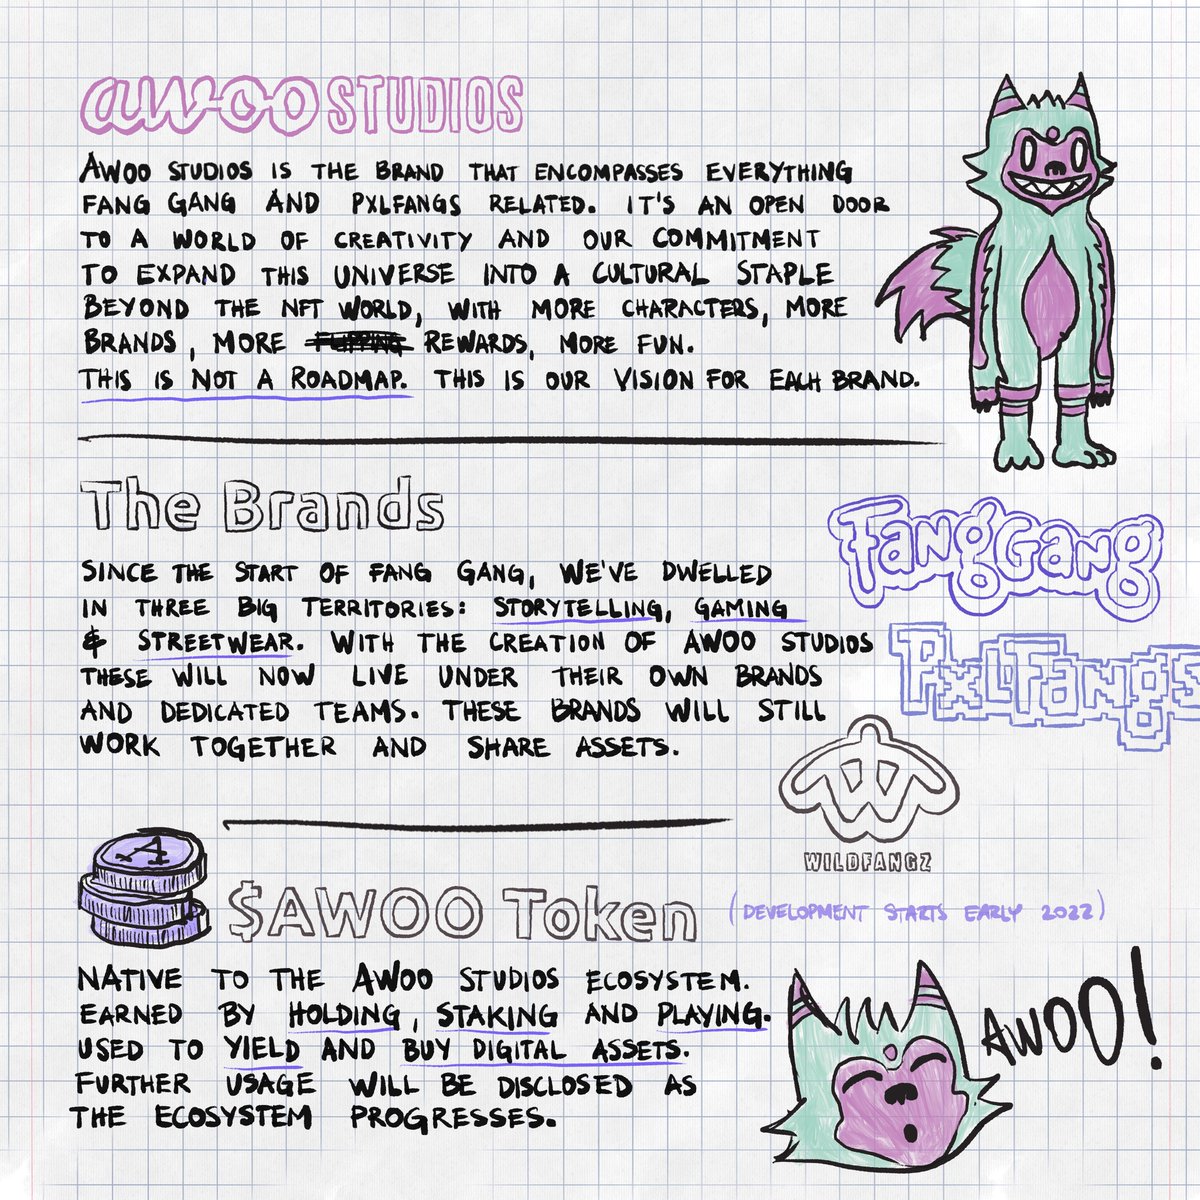 awoo STUDIOS
AWOO STUDIOS IS THE BRAND THAT ENCOMPASSES EVERYTHING
FANG GANG AND PXLFANGS RELATED. IT'S AN OPEN DOOR
TO A WORLD OF CREATIVITY AND OUR COMMITMENT
TO EXPAND THIS UNIVERSE INTO A CULTURAL STAPLE
BEYOND THE NFT WORLD, WITH MORE CHARACTERS, MORE
BRANDS, MORE REWARDS, MORE FUN.
THIS IS NOT A ROADMAP. THIS IS OUR VISION FOR EACH BRAND.
The Brands
SINCE THE START OF FANG GANG, WE'VE DWELLED
IN THREE BIG TERRITORIES: STORYTELLING, GAMING
& STREETWEAR. WITH THE CREATION OF AWOO STUDIOS
THESE WILL NOW LIVE UNDER THEIR OWN BRANDS
AND DEDICATED TEAMS. THESE BRANDS WILL STILL
WORK TOGETHER AND SHARE ASSETS.
FangGang
PxlFangs
W
WILDFANGZ
A
$AWOO Token (DEVELOPMENT STARTS EARLY 2022)
NATIVE TO THE AWOO STUDIOS ECOSYSTEM.
EARNED BY HOLDING, STAKING AND PLAYING.
USED TO YIELD AND BUY DIGITAL ASSETS.
FURTHER USAGE WILL BE DISCLOSED AS
THE ECOSYSTEM PROGRESSES.
AWOO!